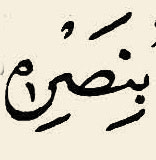 بِنَصْرِهٖ